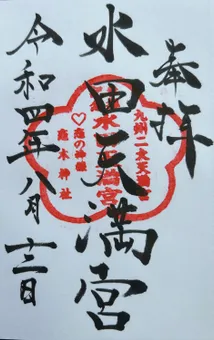 奉拝
水田天満宮
令和四年八月十三日
九州二大天満宮
水田天満宮
♡恋の神様
恋木神社